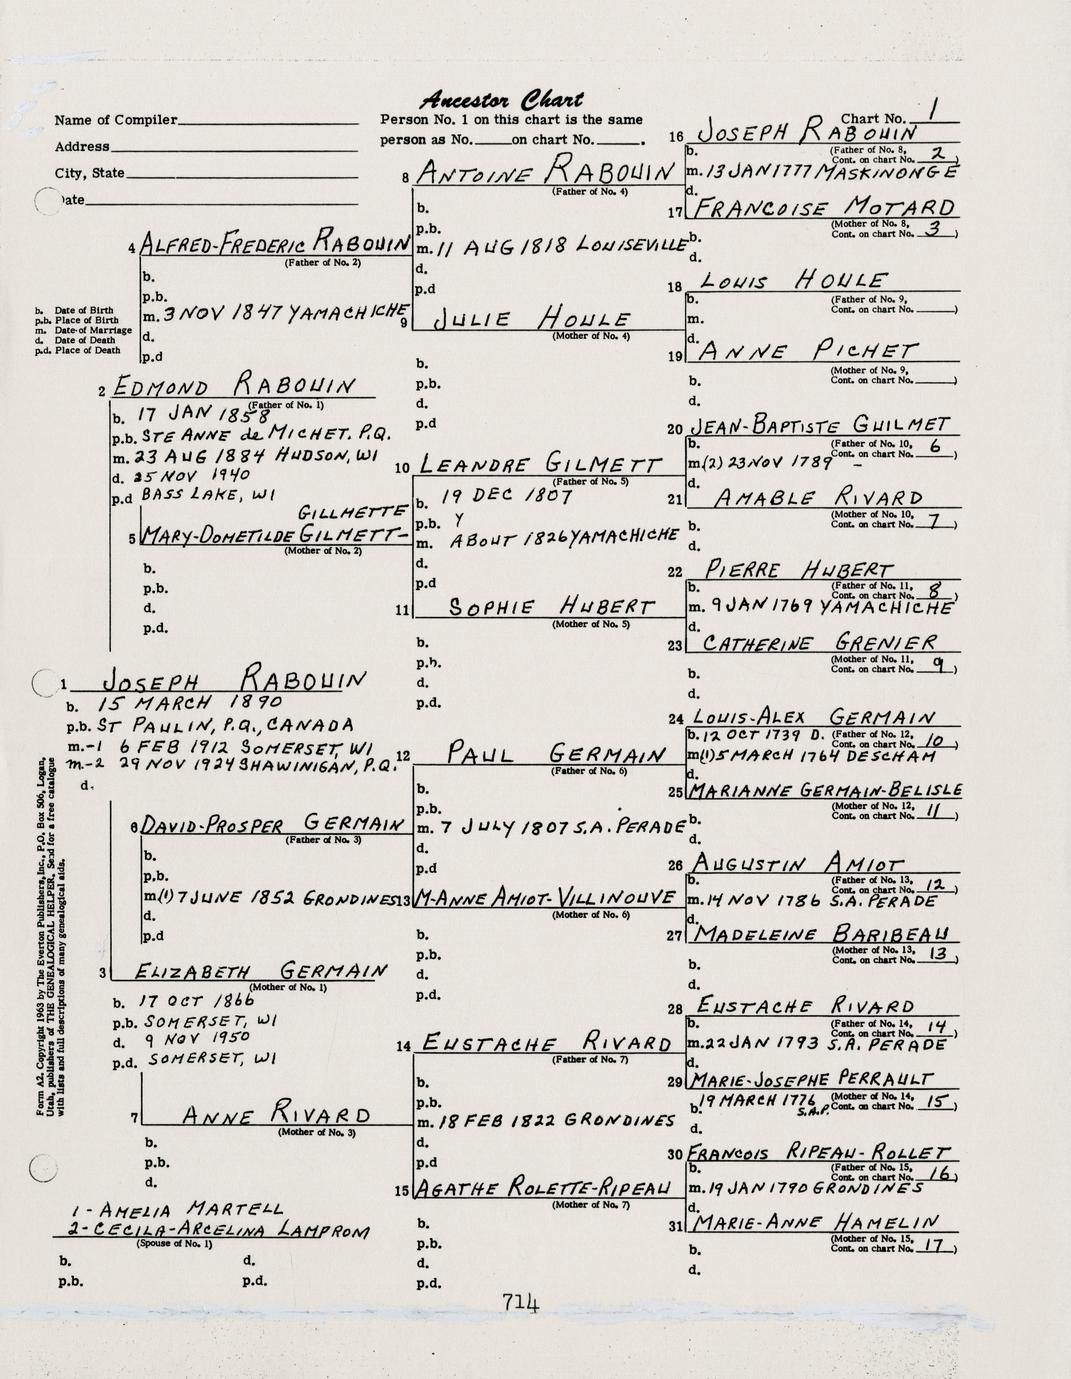 Ancestor Chart
Name of Compiler
Address
City, State
ate
Person No. 1 on this chart is the same
person as No. on chart No. .
Chart No. 1
b. Date of Birth
p.b. Place of Birth
m. Date of Marriage
d. Date of Death
p.d. Place of Death
1 JOSEPH RABOUIN
b. 15 MARCH 1890
p.b. ST PAULIN, P.Q., CANADA
m.-1 6 FEB 1912 SOMERSET, WI
m-2 29 NOV 1924 SHAWINIGAN, P.Q.
d.
2 EDMOND RABOUIN
(Father of No. 1)
b. 17 JAN 1858
p.b. STE ANNE de MICHET. P.Q.
m. 23 AUG 1884 HUDSON, WI
d. 25 NOV 1940
p.d BASS LAKE, WI
3 ELIZABETH GERMAIN
(Mother of No. 1)
b. 17 OCT 1866
p.b. SOMERSET, WI
d. 9 NOV 1950
p.d. SOMERSET, WI
4 ALFRED-FREDERIC RABOUIN
(Father of No. 2)
b.
p.b.
m. 3 NOV 1847 YAMACHICHE
d.
p.d
GILLMETTE
5 MARY-DOMETILDE GILMETT-
(Mother of No. 2)
b.
p.b.
d.
p.d.
6 DAVID-PROSPER GERMAIN
(Father of No. 3)
b.
p.b.
m(1) 7 JUNE 1852 GRONDINES
d.
p.d
7 ANNE RIVARD
(Mother of No. 3)
b.
p.b.
d.
1 - AMELIA MARTELL
2 - CECILA-ARCELINA LAMPROM
(Spouse of No. 1)
b. d.
p.b. p.d.
8 ANTOINE RABOUIN
(Father of No. 4)
b.
p.b.
m. 11 AUG 1818 LOUISEVILLE
d.
p.d
9 JULIE HOULE
(Mother of No. 4)
b.
p.b.
d.
p.d
10 LEANDRE GILMETT
(Father of No. 5)
b. 19 DEC 1807
p.b. Y
m. ABOUT 1826 YAMACHICHE
d.
p.d
11 SOPHIE HUBERT
(Mother of No. 5)
b.
p.b.
d.
p.d.
12 PAUL GERMAIN
(Father of No. 6)
b.
p.b.
m. 7 JULY 1807 S.A. PERADE
d.
p.d
13 M-ANNE AMIOT-VILLINOUVE
(Mother of No. 6)
b.
p.b.
d.
p.d.
14 EUSTACHE RIVARD
(Father of No. 7)
b.
p.b.
m. 18 FEB 1822 GRONDINES
d.
p.d
15 AGATHE ROLETTE-RIPEAU
(Mother of No. 7)
b.
p.b.
d.
p.d.
16 JOSEPH RABOUIN
b. (Father of No. 8,
Cont. on chart No. 2)
m. 13 JAN 1777 MASKINONGE
d.
17 FRANCOISE MOTARD
(Mother of No. 8,
b. Cont. on chart No. 3)
d.
18 LOUIS HOULE
b. (Father of No. 9,
Cont. on chart No. )
m.
d.
19 ANNE PICHET
(Mother of No. 9,
b. Cont. on chart No. )
d.
20 JEAN-BAPTISTE GUILMET
b. (Father of No. 10,
Cont. on chart No. 6)
m(2) 23 NOV 1789 -
d.
21 AMABLE RIVARD
(Mother of No. 10,
b. Cont. on chart No. 7)
d.
22 PIERRE HUBERT
b. (Father of No. 11,
Cont. on chart No. 8)
m. 9 JAN 1769 YAMACHICHE
d.
23 CATHERINE GRENIER
(Mother of No. 11,
b. Cont. on chart No. 9)
d.
24 LOUIS-ALEX GERMAIN
b. 12 OCT 1739 D. (Father of No. 12,
Cont. on chart No. 10)
m(1) 5 MARCH 1764 DESCHAM
d.
25 MARIANNE GERMAIN-BELISLE
(Mother of No. 12,
b. Cont. on chart No. 11)
d.
26 AUGUSTIN AMIOT
b. (Father of No. 13,
Cont. on chart No. 12)
m. 14 NOV 1786 S.A. PERADE
d.
27 MADELEINE BARIBEAU
(Mother of No. 13,
b. Cont. on chart No. 13)
d.
28 EUSTACHE RIVARD
b. (Father of No. 14,
Cont. on chart No. 14)
m. 22 JAN 1793 S.A. PERADE
d.
29 MARIE-JOSEPHE PERRAULT
b. 19 MARCH 1776 (Mother of No. 14,
S.A.P. Cont. on chart No. 15)
d.
30 FRANCOIS RIPEAU-ROLLET
b. (Father of No. 15,
Cont. on chart No. 16)
m. 19 JAN 1790 GRONDINES
d.
31 MARIE-ANNE HAMELIN
(Mother of No. 15,
b. Cont. on chart No. 17)
d.
Form A2. Copyright 1963 by The Everton Publishers, Inc., P.O. Box 506, Logan,
Utah, publishers of THE GENEALOGICAL HELPER. Send for a free catalogue
with lists and full descriptions of many genealogical aids.
714